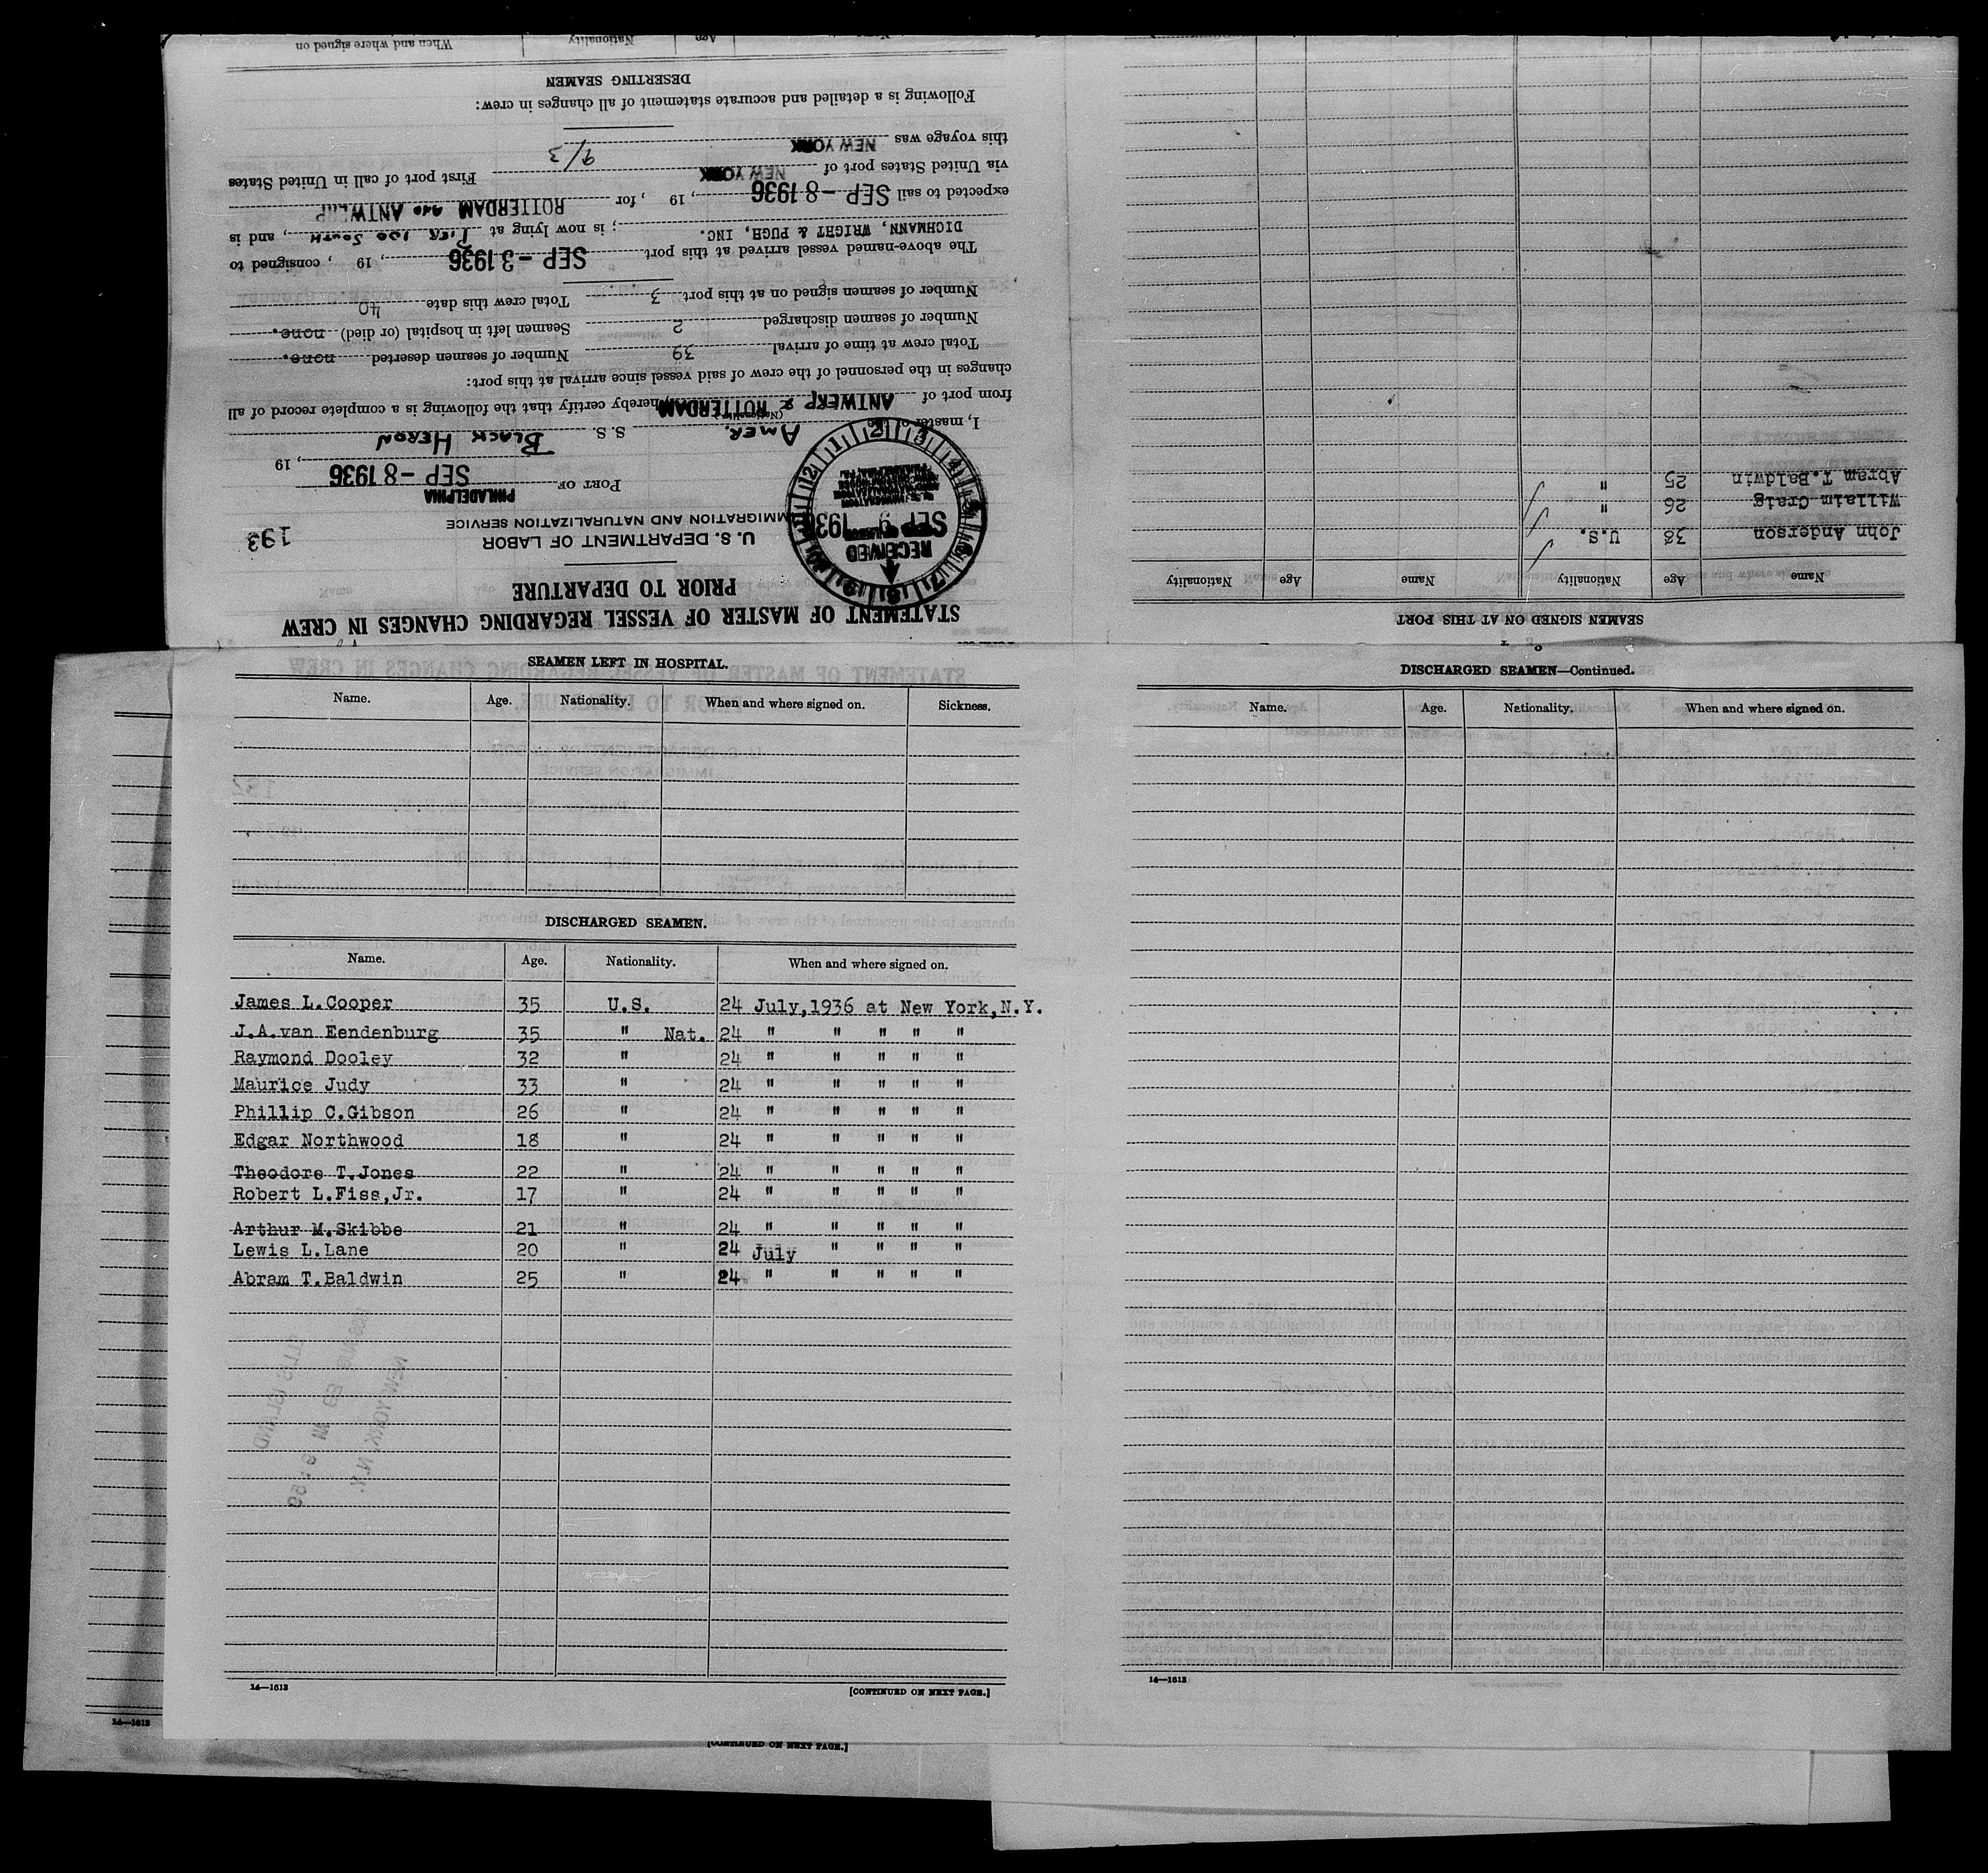 STATEMENT OF MASTER OF VESSEL REGARDING CHANGES IN CREW
PRIOR TO DEPARTURE
U. S. DEPARTMENT OF LABOR
IMMIGRATION AND NATURALIZATION SERVICE
193
RECEIVED
SEP 9 1936
PORT OF PHILADELPHIA
SEP - 8 1936, 19
I, master of the AMER. S.S. BLACK HERON
(Nationality)
from port of ANTWERP & ROTTERDAM hereby certify that the following is a complete record of all
changes in the personnel of the crew of said vessel since arrival at this port:
Total crew at time of arrival 39 Number of seamen deserted none.
Number of seamen discharged 2 Seamen left in hospital (or died) none.
Number of seamen signed on at this port 3 Total crew this date 40
The above-named vessel arrived at this port SEP - 3 1936, 19 , consigned to
DICHMANN, WRIGHT & PUGH, INC. ; is now lying at PIER 100 SOUTH, and is
expected to sail SEP - 8 1936, 19 , for ROTTERDAM AND ANTWERP
via United States port of NEW YORK First port of call in United States
this voyage was NEW YORK 9/3
Following is a detailed and accurate statement of all changes in crew:
DESERTING SEAMEN
Name Age Nationality When and where signed on
SEAMEN SIGNED ON AT THIS PORT
Name Age Nationality Name Age Nationality
John Anderson 38 U.S.
William Craig 26 "
Abram T.Baldwin 25 "
SEAMEN LEFT IN HOSPITAL.
Name. Age. Nationality. When and where signed on. Sickness.
DISCHARGED SEAMEN.
Name. Age. Nationality. When and where signed on.
James L.Cooper 35 U.S. 24 July,1936 at New York,N.Y.
J.A.van Eendenburg 35 " Nat. 24 " " " " "
Raymond Dooley 32 " 24 " " " " "
Maurice Judy 33 " 24 " " " " "
Phillip C.Gibson 26 " 24 " " " " "
Edgar Northwood 18 " 24 " " " " "
Theodore T.Jones 22 " 24 " " " " "
Robert L.Fiss,Jr. 17 " 24 " " " " "
Arthur M.Skibbe 21 " 24 " " " " "
Lewis L.Lane 20 " 24 July " " " "
Abram T.Baldwin 25 " 24 " " " " "
14—1613
[CONTINUED ON NEXT PAGE.]
DISCHARGED SEAMEN—Continued.
Name. Age. Nationality. When and where signed on.
14—1613
14—1613
[CONTINUED ON NEXT PAGE.]